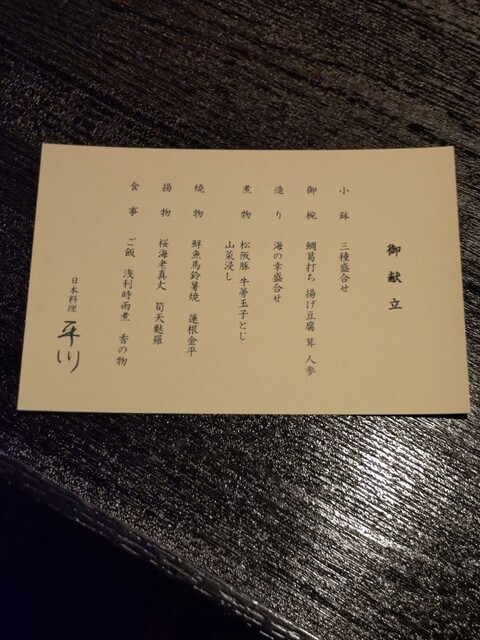 御献立
小鉢 三種盛合せ
御椀 鯛葛打ち 揚げ豆腐 茸 人参
造り 海の幸盛合せ
煮物 松阪豚 牛蒡玉子とじ
山菜浸し
焼物 鮮魚馬鈴薯焼 蓮根金平
揚物 桜海老真丈 筍天麩羅
食事 ご飯 浅利時雨煮 香の物
日本料理 平川